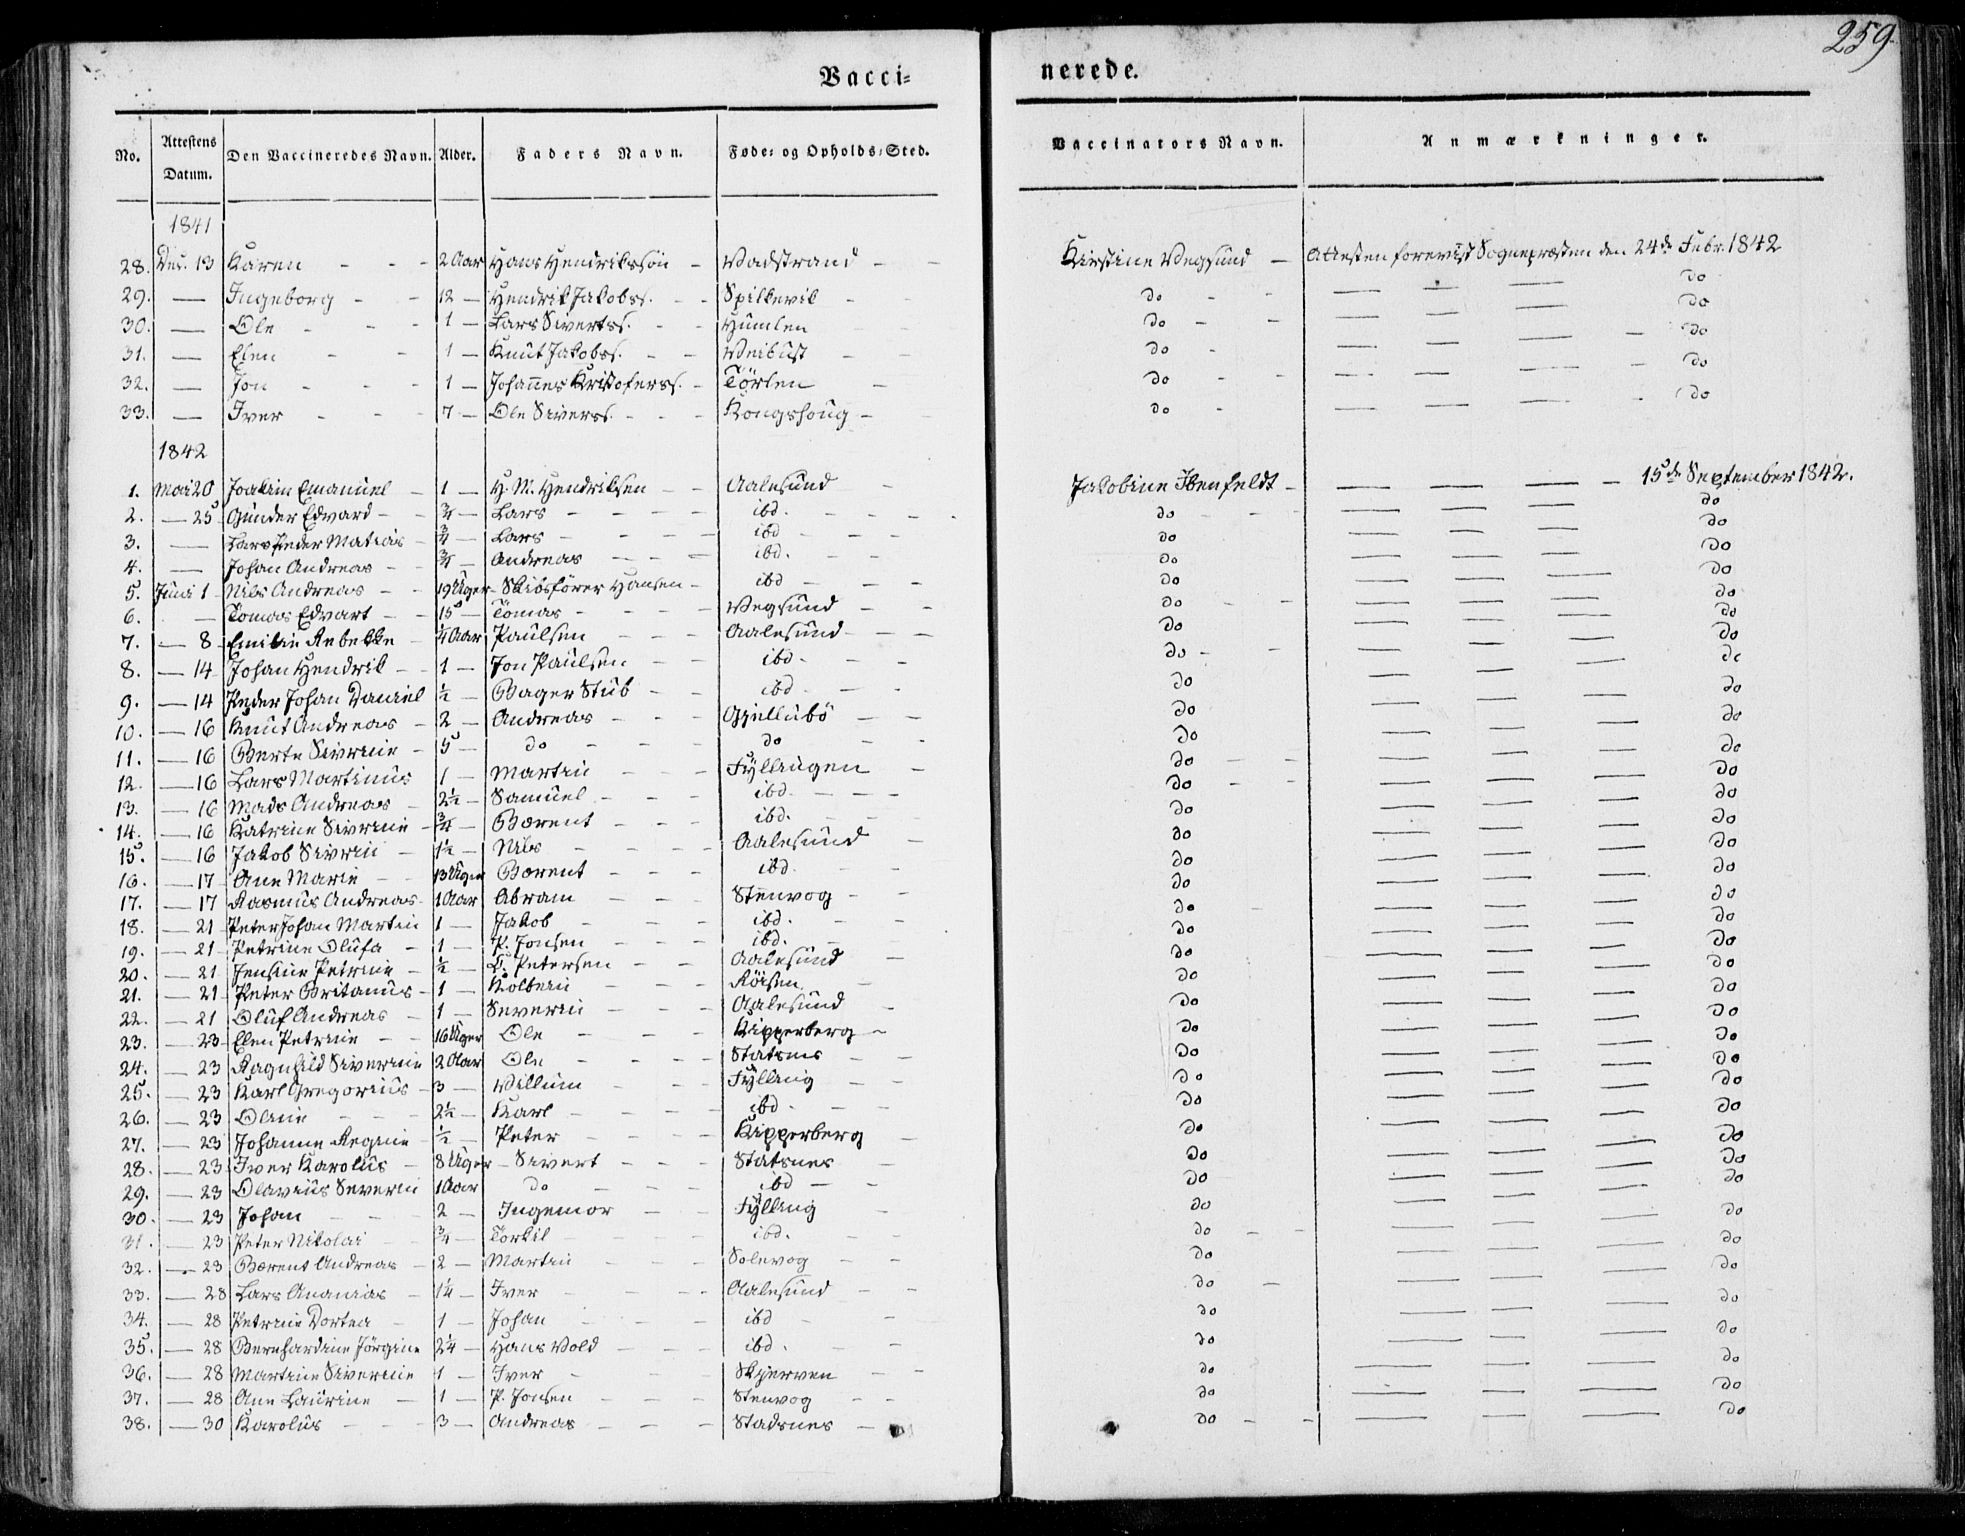 259
Vacci= nerede.
No. Attestens Datum. Den Vaccineredes Navn. Alder. Faders Navn. Føde- og Opholds-Sted. Vaccinators Navn. Anmærkninger.
1841
28. Dec. 13 Karen - - - 2 Aar Hans Hendrikssøn - Vadstrand - - Kirstine Vegsund - Attesten forevist Sognepræsten den 24de Febr. 1842
29. — Ingeborg - - 12 — Hendrik Jakobss. - - Spilkevik - do - - — — — do
30. — Ole - - - 1 — Lars Sivertss. - - Humlen do - - — — — do
31. — Elen - - 1 — Knut Jakobss. - - Veibust - do - — — — - do
32. — Jon - - - 1 — Johannes Kristoferss. - Tørlen - do - - — — — - do
33. — Iver - - - 7 — Ole Siverss. - - - Kongshoug - do - — — — - do
1842
1. Mai 20 Joakim Emanuel - 1 — H. M. Hendriksen - - Aalesund - Jakobine Ibenfeldt - — — — — - 15de September 1842.
2. — 25 Gunder Edvard - - ¾ — Lars - - - - ibd. - - - - do - - — — — do
3. — Lars Peder Matias - ¾ — Lars - - - - ibd - - - do — — — do
4. — Johan Andreas - - ¾ — Andreas - - - ibd. - - do — — — do
5. Juni 1 Nils Andreas - - 19 Uger - Skibsfører Hansen - ibd - - - do — — — do
6. - Tomas Edvart - - 15 — Tomas - - - - Vegsund - - do - - — — — do
7. — 8 Emilie Rebekke - ¼ Aar Paulsen - - - Aalesund - - - do — — — do
8. — 14 Johan Hendrik - - 1 — Jon Paulsen - - ibd. - - do - — — — do
9. — 14 Peder Johan Daniel ½ — Bager Stub - - ibd - - - do — — — do
10. — 16 Knut Andreas - 2 — Andreas - - - Gjellubø - - do — — — do
11. — 16 Berte Sivrine - 5 — do - - - do - - do — — — do
12. — 16 Lars Martinus 1 — Martin - - - Fyllingen - do - - — — — do
13. — 16 Mads Andreas - 2½ — Samuel - - - ibd. - - - do - - — — — do
14. — 16 Katrine Sivrine - ¾ — Bærent - - - ibd. - - do — — — do
15. — 16 Jakob Sivrin - 1½ — Nils - - - - Aalesund - do — — — do
16. — 17 Ane Marie - - 13 Uger Bærent - - - ibd. - do — — — do
17. — 17 Rasmus Andreas - 1 Aar Abram - - - Stenvog - - do — — — do
18. — 21 Peter Johan Martin 1 — Jakob - - - ibd. - - do - — — — do
19. — 21 Petrine Olufa - 1 — P. Jonsen - - - ibd. - do — — — do
20. — 21 Jensine Petrine - ½ — Petersen - - Aalesund - do — — — do
21. — 21 Peter Britanus - 1 — Kolbein - - - Røisen - do — — — do
22. — 21 Oluf Andreas - 1 — Severin - - - Aalesund - do — — — do
23. — 23 Elen Petrine - - 16 Uger Ole - - - Kipperberg - do — — — do
24. — 23 Ragnhild Siverine 2 Aar Ole - - - Statsnes - - do — — — do
25. — 23 Karl Gregorius - 3 — Villum - - - Fylling - - do — — — do
26. — 23 Oline - - - 2½ — Karl - - - - ibd - - do — — — do
27. — 23 Johanne Regine - ½ — Peter - - - - Kipperberg - do — — — do
28. — 23 Iver Karolus - 8 Uger - Sivert - - - Statsnes - do — — — do
29. — 23 Olavius Severin 1 Aar do - - - ibd - - do — — — do
30. — 23 Johan - - - 2 — Ingemor - - - Fylling - do — — — do
31. — 23 Peter Nikolai - ¾ — Torkil - - - ibd. - - do - - — — — do
32. — 23 Bærent Andreas - 2 — Martin - - - Solevog - - do — — — do
33. — 28 Lars Ananias - 1¼ — Iver - - - - Aalesund - - do - — — — do
34. — 28 Petrine Dortea - 1 — Johan - - - ibd - - do — — — do
35. — 28 Bernhardine Jørgine 2¼ — Hans Vold - - - ibd. - - do — — — do
36. — 28 Martine Siverine 1 — Iver - - - - Skjerven - - do — — — do
37. — 28 Ane Laurine - 1 — P. Jonsen - - - Stenvog - - do — — — do
38. — 30 Karolus - - 3 — Andreas - - - Stadsnes - do - - — — — do